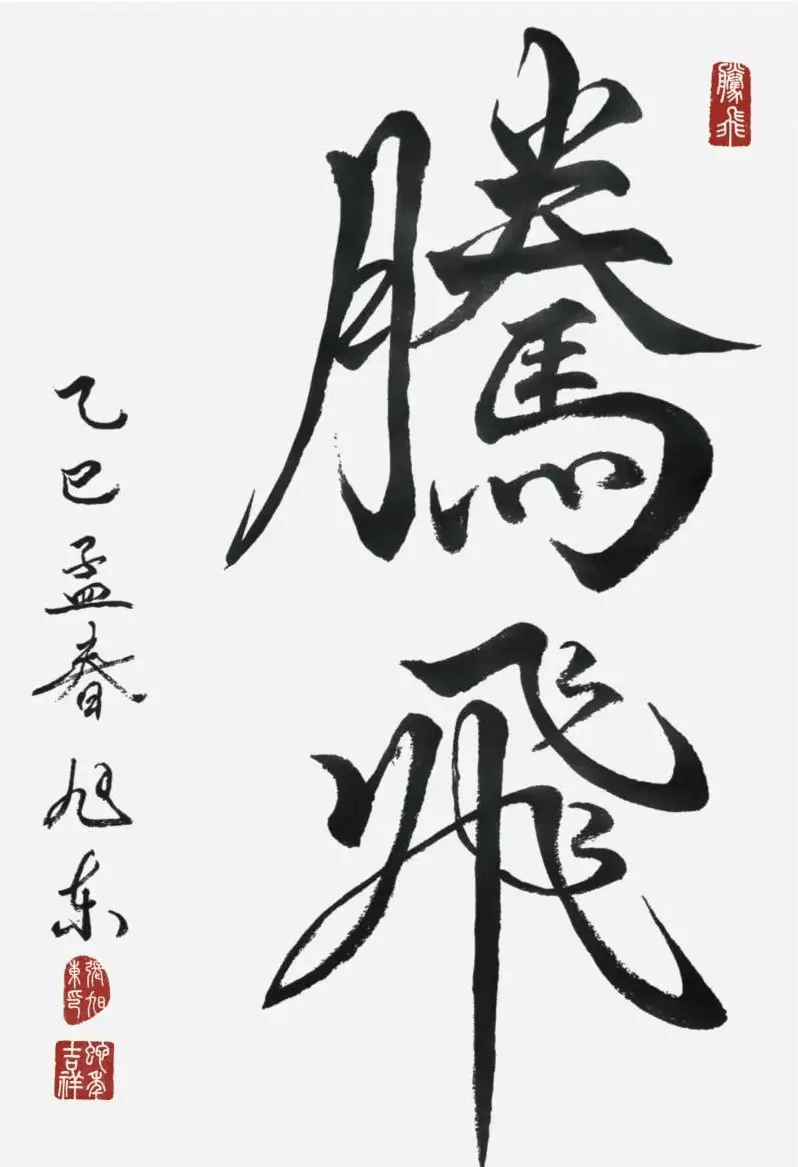 騰飛
乙巳孟春 旭东
騰飛
蛇年吉祥